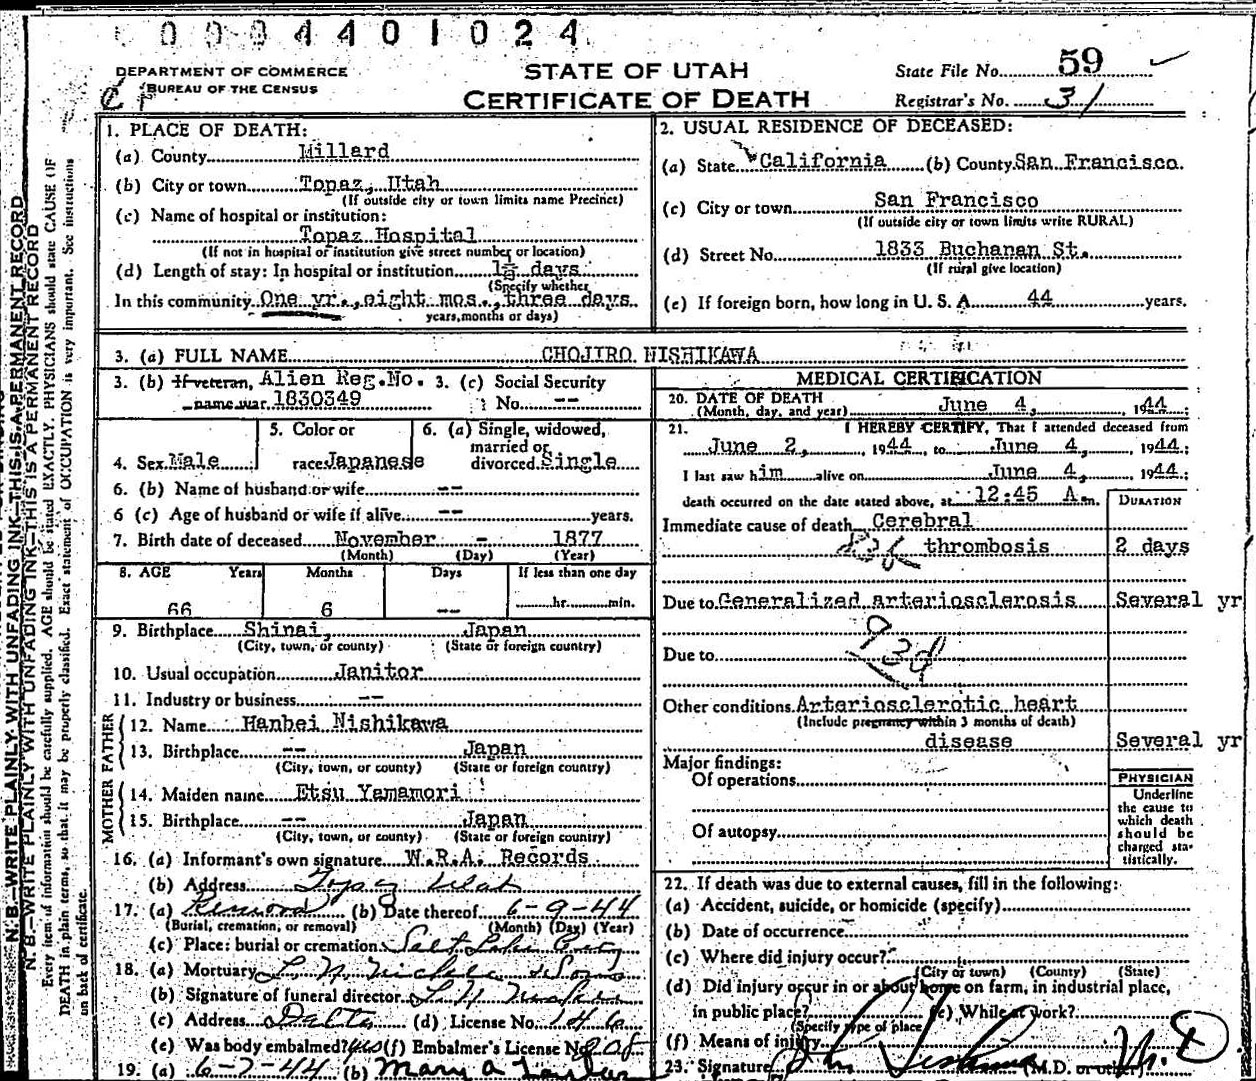 0004401024
DEPARTMENT OF COMMERCE
BUREAU OF THE CENSUS
STATE OF UTAH
CERTIFICATE OF DEATH
State File No. 59
Registrar's No. 31
N.B.—WRITE PLAINLY WITH UNFADING INK—THIS IS A PERMANENT RECORD
N.B.—WRITE PLAINLY WITH UNFADING INK—THIS IS A PERMANENT RECORD
Every item of information should be carefully supplied. AGE should be stated EXACTLY. PHYSICIANS should state CAUSE OF
DEATH in plain terms, so that it may be properly classified. Exact statement of OCCUPATION is very important. See instructions
on back of certificate.
1. PLACE OF DEATH:
(a) County Millard
(b) City or town Topaz, Utah
(If outside city or town limits name Precinct)
(c) Name of hospital or institution:
Topaz Hospital
(If not in hospital or institution give street number or location)
(d) Length of stay: In hospital or institution days
(Specify whether
In this community One yr., eight mos., three days
years, months or days)
2. USUAL RESIDENCE OF DECEASED:
(a) State California (b) County San Francisco
(c) City or town San Francisco
(If outside city or town limits write RURAL)
(d) Street No. 1833 Buchanan St.
(If rural give location)
(e) If foreign born, how long in U. S. A. 44 years.
3. (a) FULL NAME CHOJIRO NISHIKAWA
3. (b) If veteran, Alien Reg.No. 3. (c) Social Security
name war 1830349 No. --
4. Sex Male
5. Color or
race Japanese
6. (a) Single, widowed,
married or
divorced Single
6. (b) Name of husband or wife --
6 (c) Age of husband or wife if alive -- years.
7. Birth date of deceased November - 1877
(Month) (Day) (Year)
8. AGE Years Months Days If less than one day
66 6 -- hr. min.
9. Birthplace Shinai, Japan
(City, town, or county) (State or foreign country)
10. Usual occupation Janitor
11. Industry or business --
FATHER
12. Name Hanbei Nishikawa
13. Birthplace -- Japan
(City, town, or county) (State or foreign country)
MOTHER
14. Maiden name Etsu Yamamori
15. Birthplace -- Japan
(City, town, or county) (State or foreign country)
16. (a) Informant's own signature W.R.A. Records
(b) Address Topaz Utah
17. (a) Removal (b) Date thereof 6-9-44
(Burial, cremation, or removal) (Month) (Day) (Year)
(c) Place: burial or cremation Salt Lake City
18. (a) Mortuary & Sons
(b) Signature of funeral director
(c) Address Delta (d) License No. 146
(e) Was body embalmed? yes (f) Embalmer's License No. 208
19. (a) 6-7-44 (b) Mary A Taylor
MEDICAL CERTIFICATION
20. DATE OF DEATH
(Month, day, and year) June 4, 1944;
21. I HEREBY CERTIFY, That I attended deceased from
June 2, 1944, to June 4, 1944;
I last saw him alive on June 4, 1944;
death occurred on the date stated above, at 12:45 A.m.
DURATION
Immediate cause of death Cerebral
thrombosis 2 days
Due to Generalized arteriosclerosis Several yr
93d
Due to
Other conditions Arteriosclerotic heart
(Include pregnancy within 3 months of death)
disease Several yr
Major findings:
Of operations
Of autopsy
PHYSICIAN
Underline
the cause to
which death
should be
charged sta-
tistically.
22. If death was due to external causes, fill in the following:
(a) Accident, suicide, or homicide (specify)
(b) Date of occurrence
(c) Where did injury occur?
(City or town) (County) (State)
(d) Did injury occur in or about home on farm, in industrial place,
in public place? (e) While at work?
(Specify type of place
(f) Means of injury
23. Signature (M.D. or